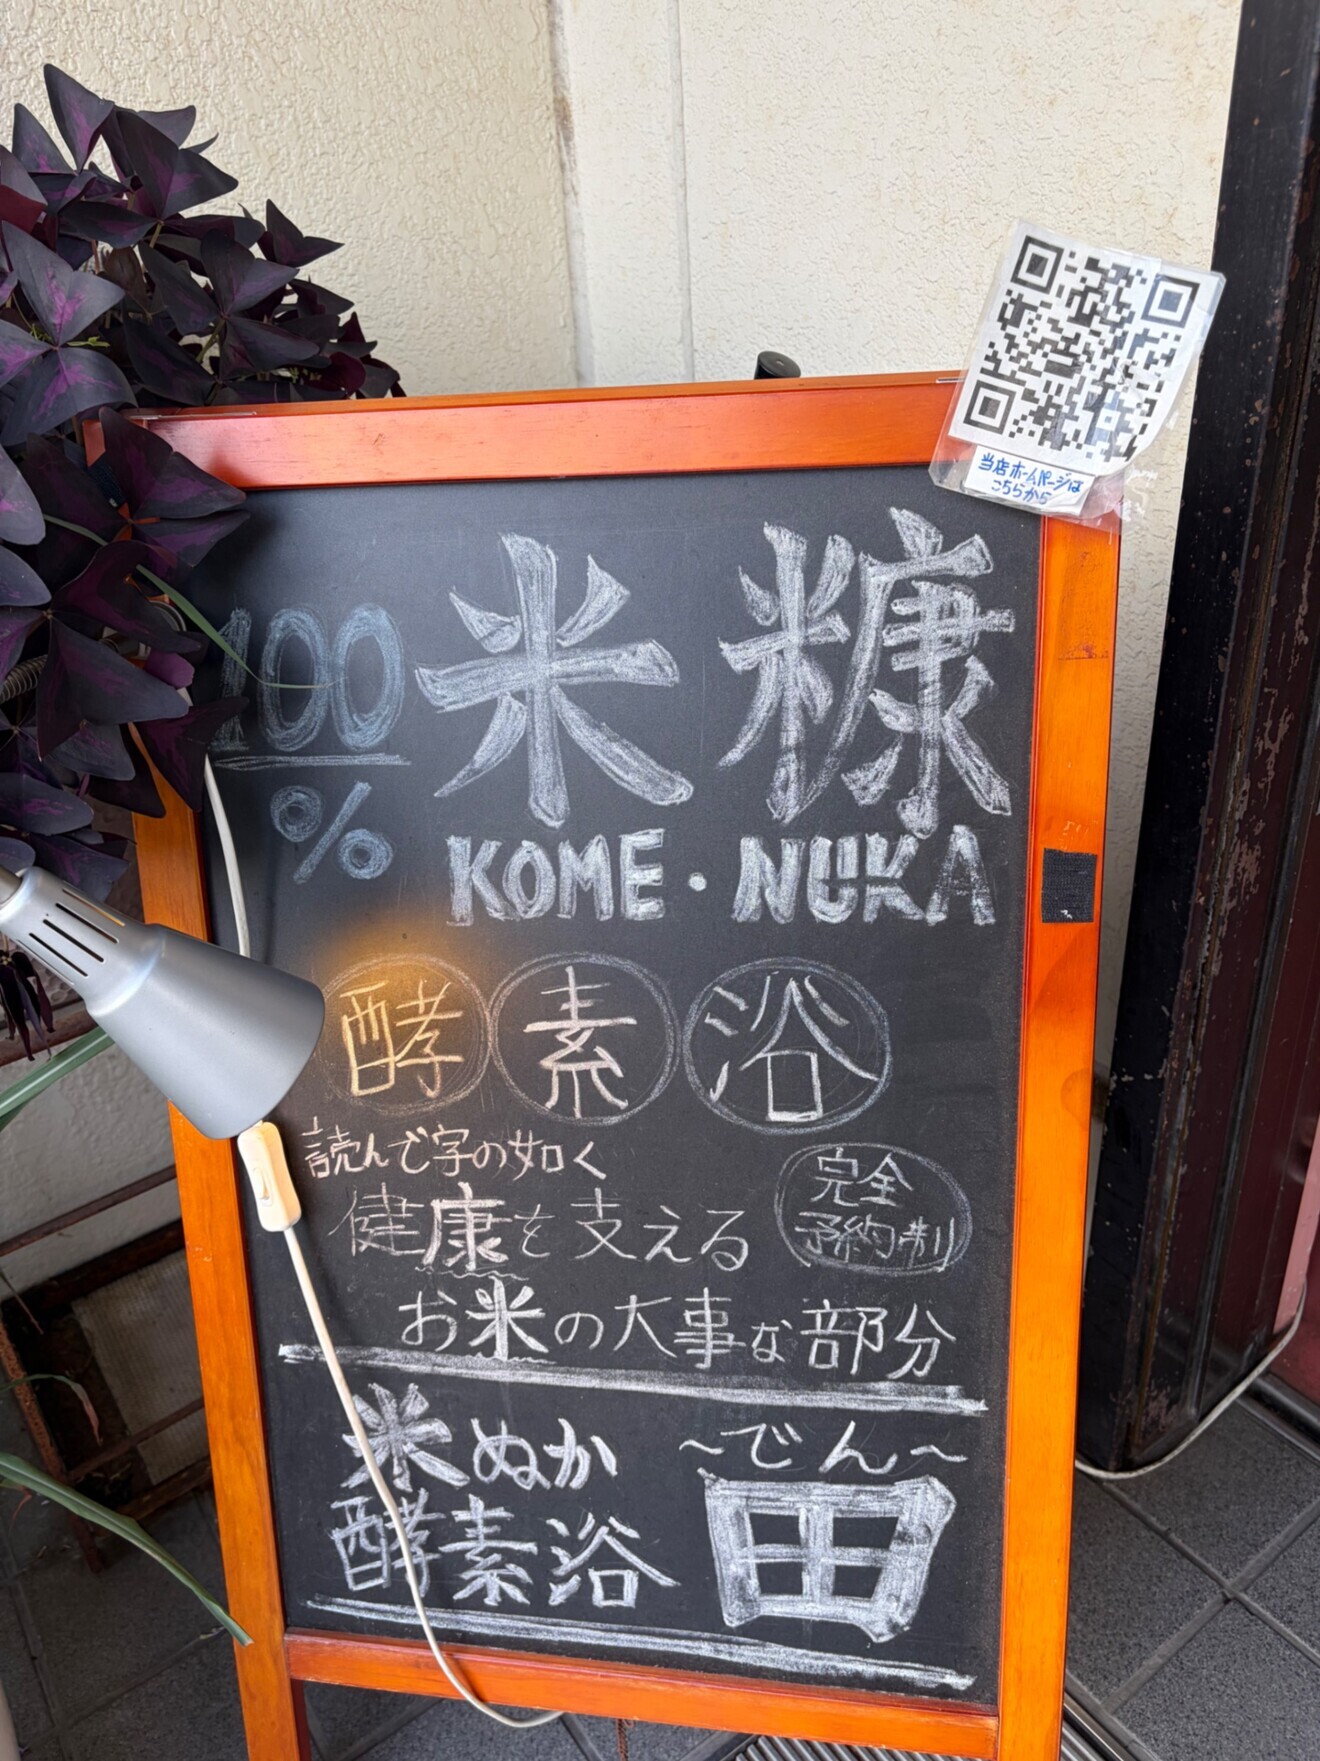 当店ホームページは
こちらから
100
%
米糠
KOME・NUKA
酵素浴
読んで字の如く
健康を支える
お米の大事な部分
完全
予約制
米ぬか
酵素浴
～でん～
田